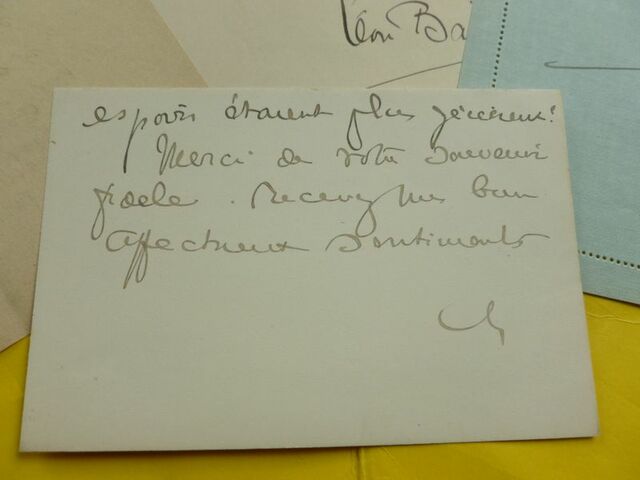 Léon Ba
espoirs étaient plus
Merci de votre souvenir
fidele. Recevez mes bien
affectueux sentiments